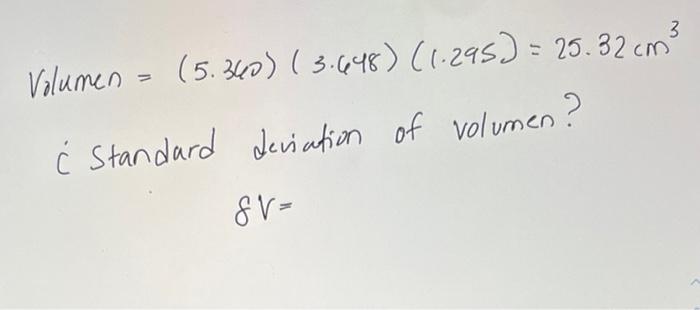 Volumen = (5.360) (3.648) (1.295) = 25.32 cm³
¿ Standard deviation of volumen?
δV=